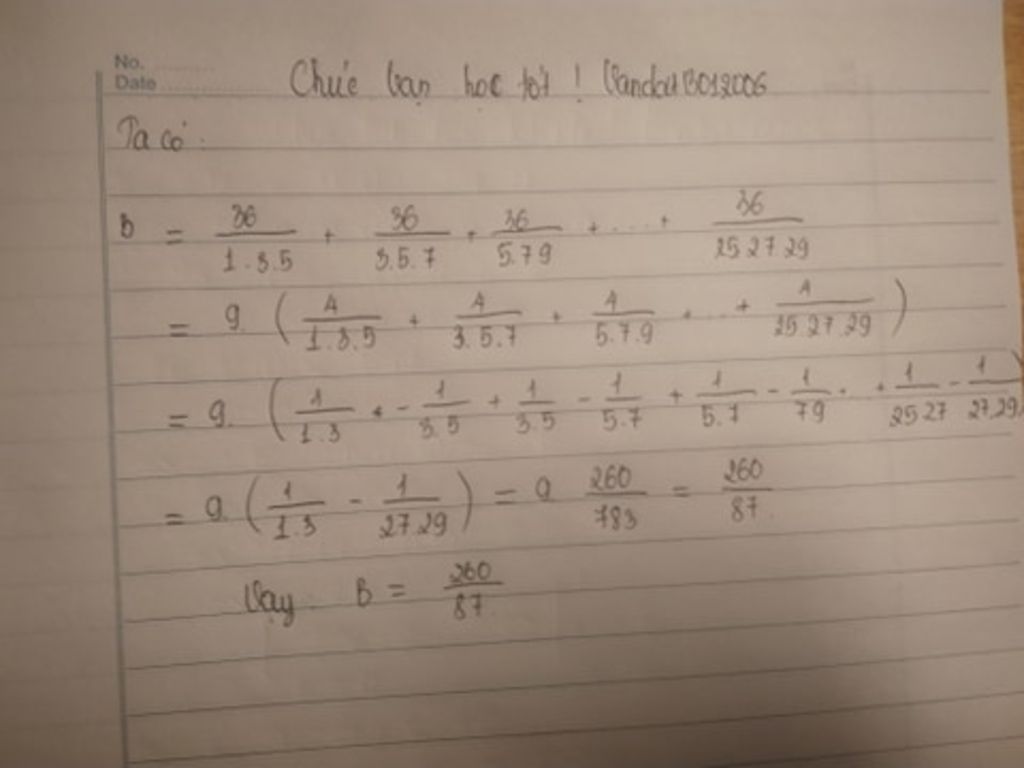 No. ............
Date ....................
Chúc bạn học tốt !
Ta có :
B = 36/1.3.5 + 36/3.5.7 + 36/5.7.9 + .... + 36/25.27.29
= 9 ( 4/1.3.5 + 4/3.5.7 + 4/5.7.9 + ... + 4/25.27.29 )
= 9. ( 1/1.3 - 1/3.5 + 1/3.5 - 1/5.7 + 1/5.7 - 1/7.9 . . + 1/25.27 - 1/27.29 )
= 9. ( 1/1.3 - 1/27.29 ) = 9 260/783 = 260/87
Vậy B = 260/87